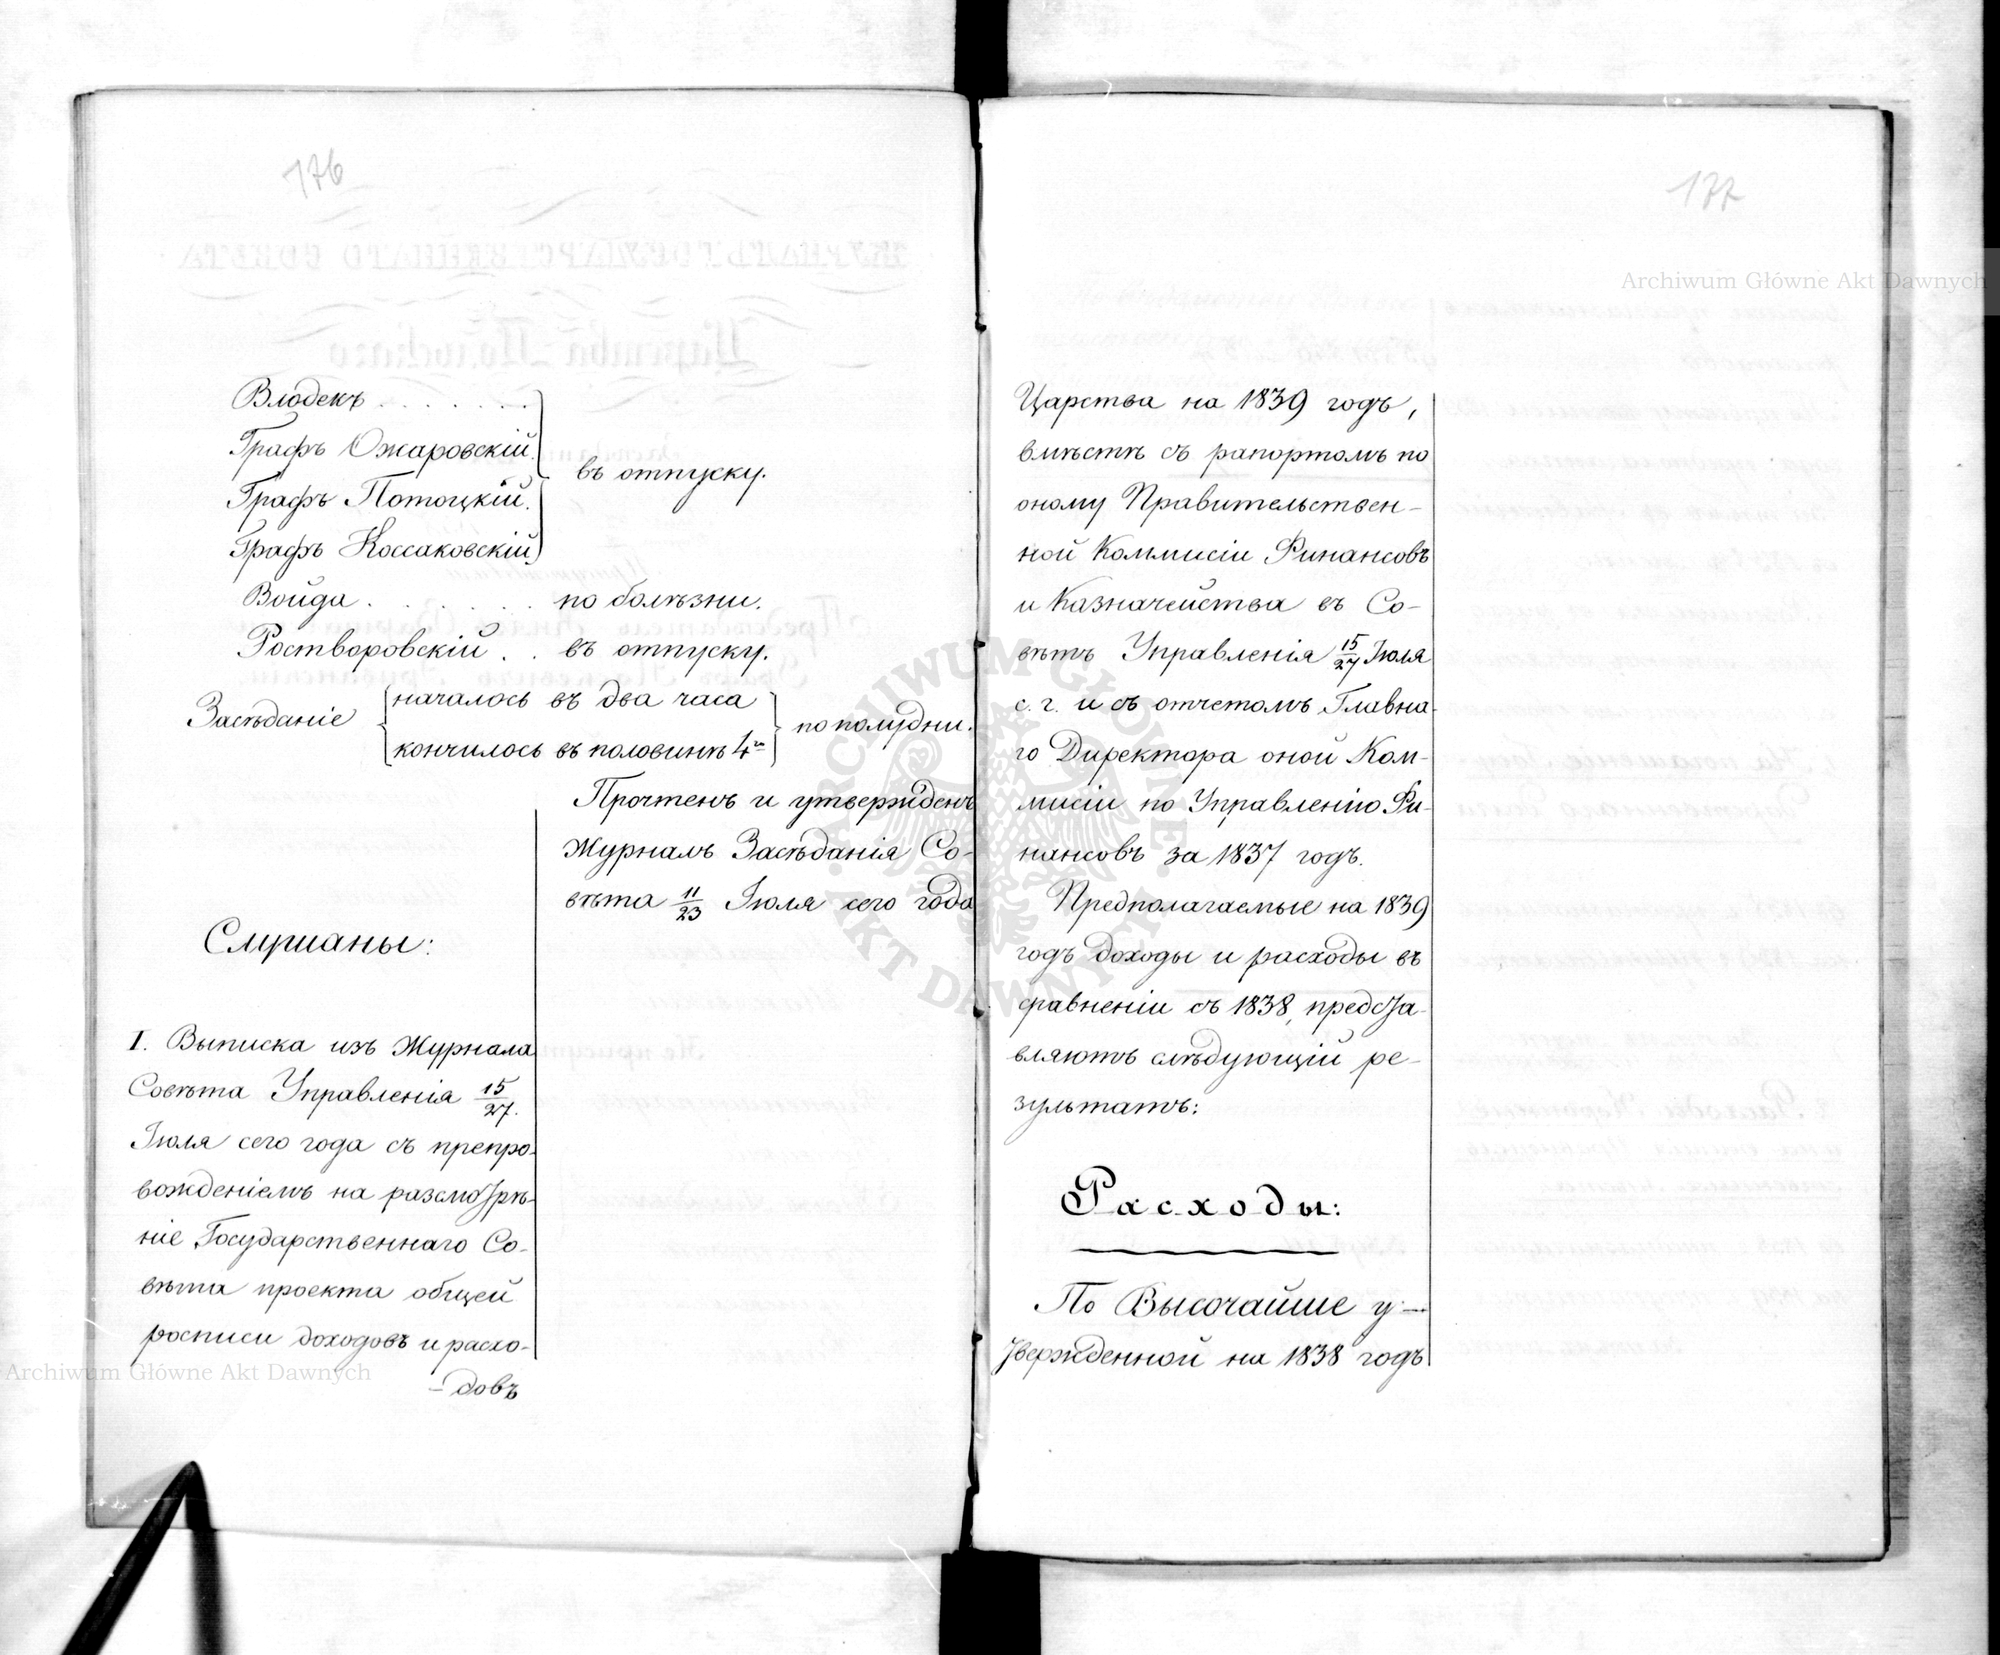 176
Влодекъ . . . . . . .
Графъ Ожаровскій.
въ отпуску.
Графъ Потоцкій.
Графъ Коссаковскій
Войда . . . . . . по болѣзни.
Ростворовскій . . въ отпуску.
Засѣданіе
началось въ два часа
кончилось въ половинѣ 4го
по полудни.
Прочтенъ и утвержденъ
Журналъ Засѣданія Со-
вѣта 11/23 Іюля сего года
Слушаны:
I. Выписка изъ Журнала
Совѣта Управленія 15/27.
Іюля сего года съ препро-
вожденіемъ на разсмотрѣ-
ніе Государственнаго Со-
вѣта проекта общей
росписи доходовъ и расхо-
-довъ
177
Царства на 1839 годъ,
вмѣстѣ съ рапортомъ по
оному Правительствен-
ной Коммисіи Финансовъ
и Казначейства въ Со-
вѣтъ Управленія 15/27 Іюля
с. г. и съ отчетомъ Главна-
го Директора оной Ком-
мисіи по Управленію Фи-
нансовъ за 1837 годъ.
Предполагаемые на 1839
годъ доходы и расходы въ
сравненіи съ 1838, предста-
вляютъ слѣдующій ре-
зультатъ:
Расходы:
По Высочайше у-
твержденной на 1838 годъ
Archiwum Główne Akt Dawnych
Archiwum Główne Akt Dawnych
ARCHIWUM GŁÓWNE AKT DAWNYCH